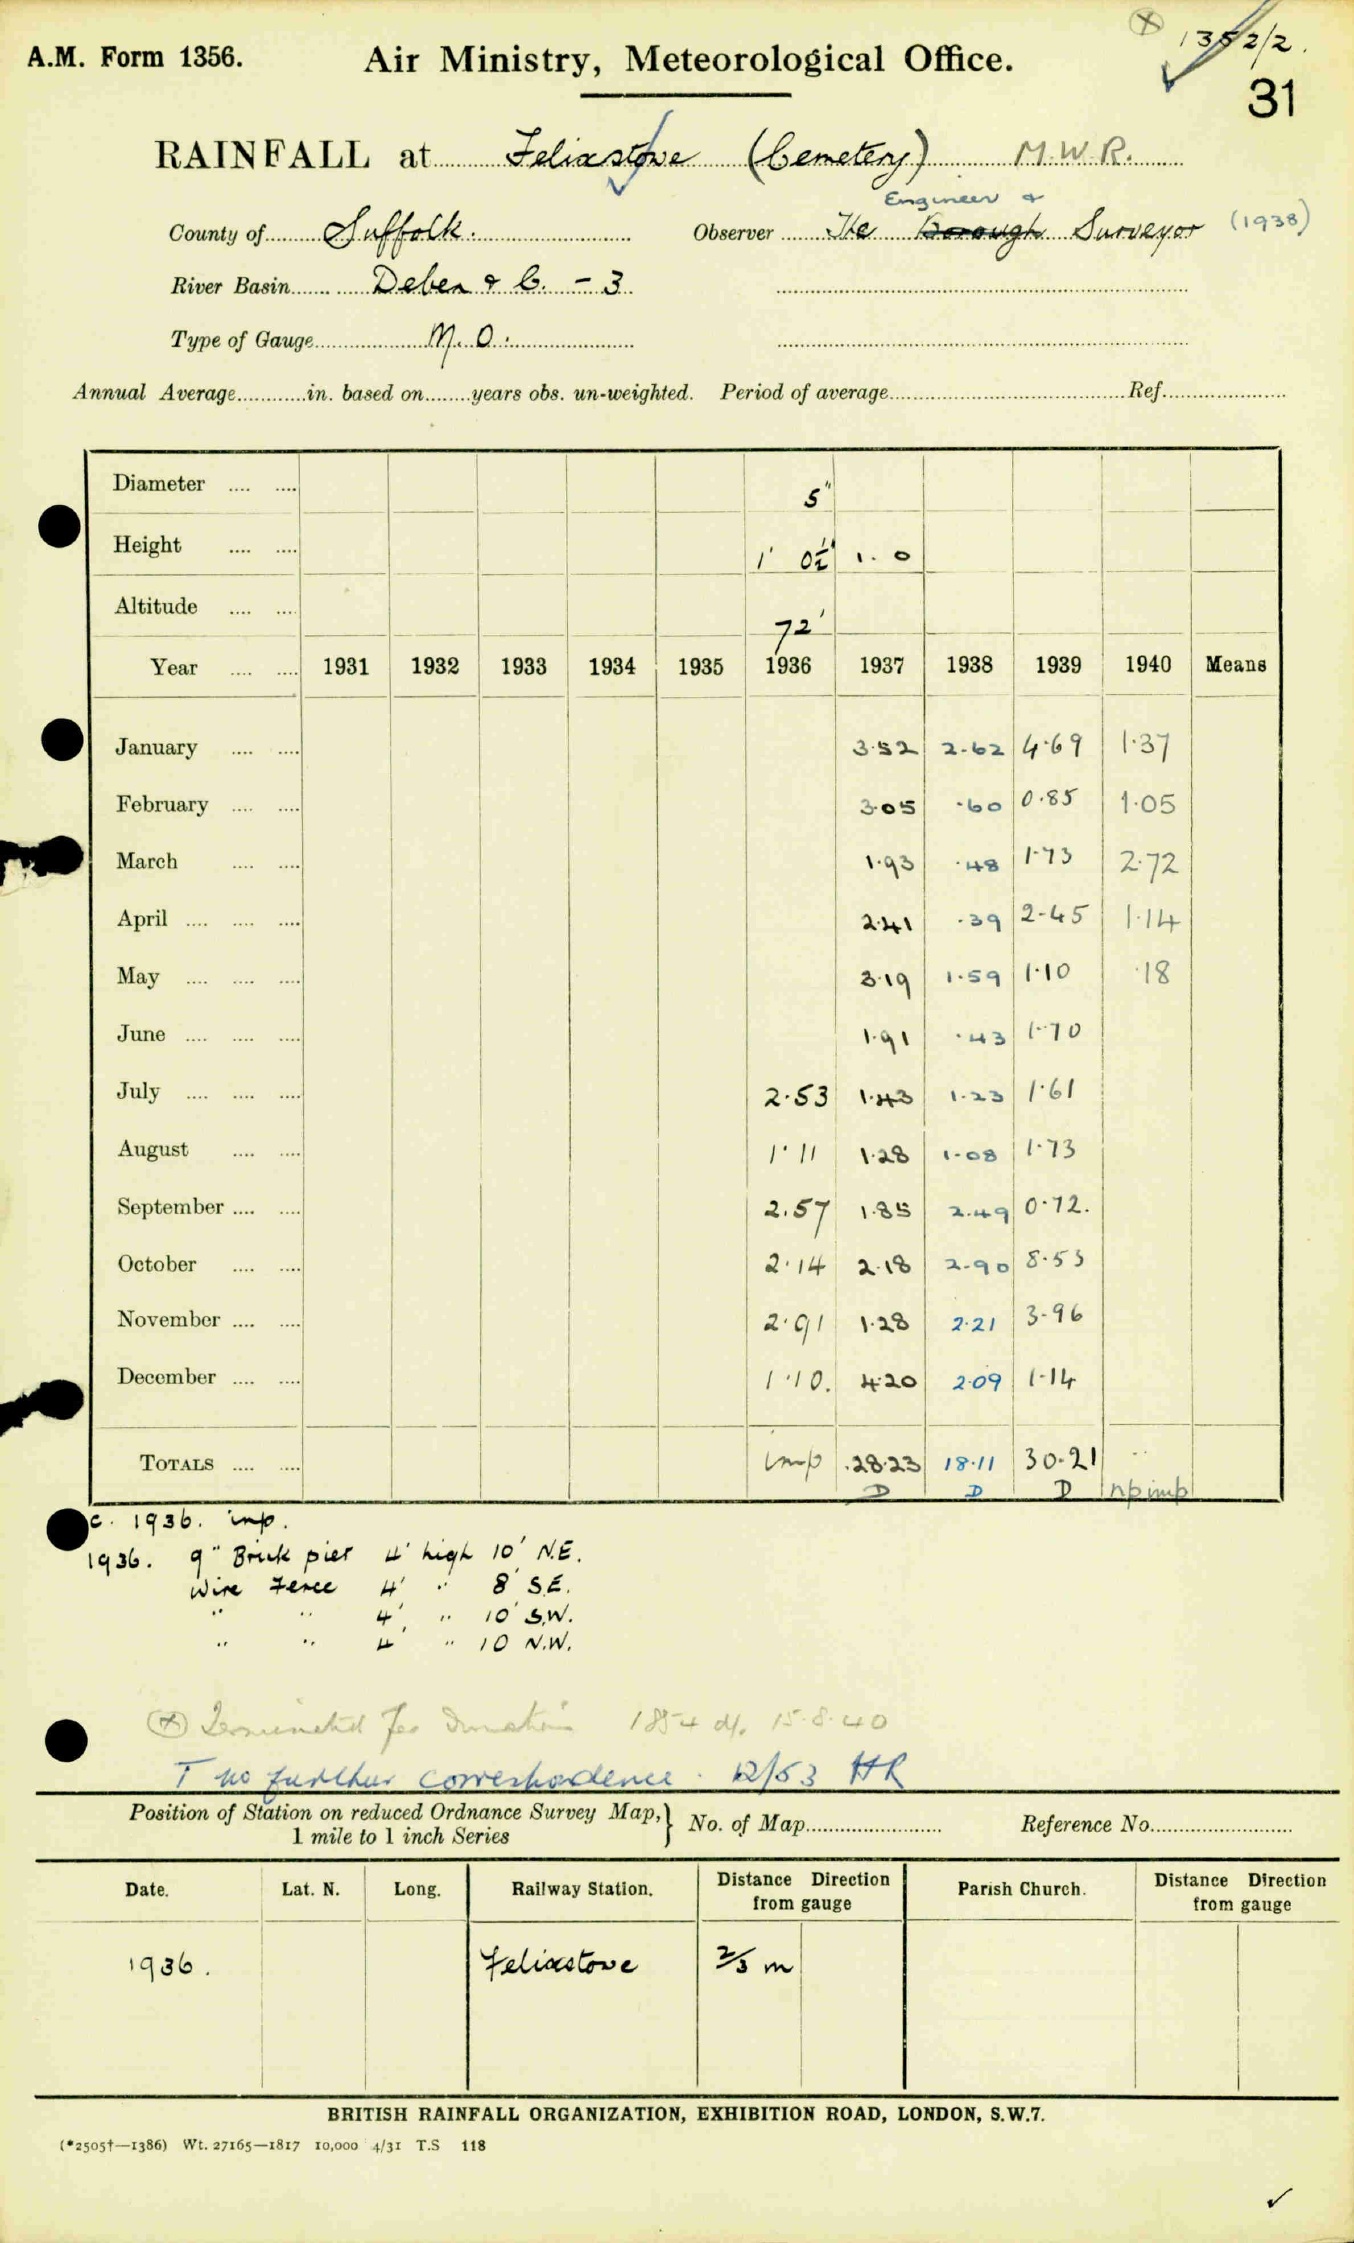 A.M. Form 1356.
Air Ministry, Meteorological Office.
1352/2.
31
RAINFALL at Felixstowe (Cemetery) M.W.R.
Engineer &
County of Suffolk. Observer The Borough Surveyor (1938)
River Basin Deben & C. - 3
Type of Gauge M.O.
Annual Average in. based on years obs. un-weighted. Period of average Ref.
Diameter 5"
Height 1' 0½" 1. 0
Altitude 72'
Year 1931 1932 1933 1934 1935 1936 1937 1938 1939 1940 Means
January 3.52 2.62 4.69 1.37
February 3.05 .60 0.85 1.05
March 1.93 .48 1.73 2.72
April 2.41 .39 2.45 1.14
May 3.19 1.59 1.10 .18
June 1.91 .43 1.70
July 2.53 1.43 1.23 1.61
August 1.11 1.28 1.08 1.73
September 2.57 1.85 2.49 0.72.
October 2.14 2.18 2.90 8.53
November 2.91 1.28 2.21 3.96
December 1.10. 4.20 2.09 1.14
TOTALS imp .28.23 18.11 30.21 ..
D D D np imp
c. 1936. imp.
1936. 9" Brick pier 4' high 10' N.E.
Wire Fence 4' " 8' S.E.
" " 4' " 10' S.W.
" " 4' " 10 N.W.
Terminated for Duration 1854 d/. 15.8.40
T no further correspondence. 12/53 HR
Position of Station on reduced Ordnance Survey Map,} No. of Map Reference No.
1 mile to 1 inch Series
Date. Lat. N. Long. Railway Station. Distance Direction from gauge Parish Church. Distance Direction from gauge
1936. Felixstowe 2/3 m
BRITISH RAINFALL ORGANIZATION, EXHIBITION ROAD, LONDON, S.W.7.
(*2505†—1386) Wt. 27165—1817 10,000 4/31 T.S 118